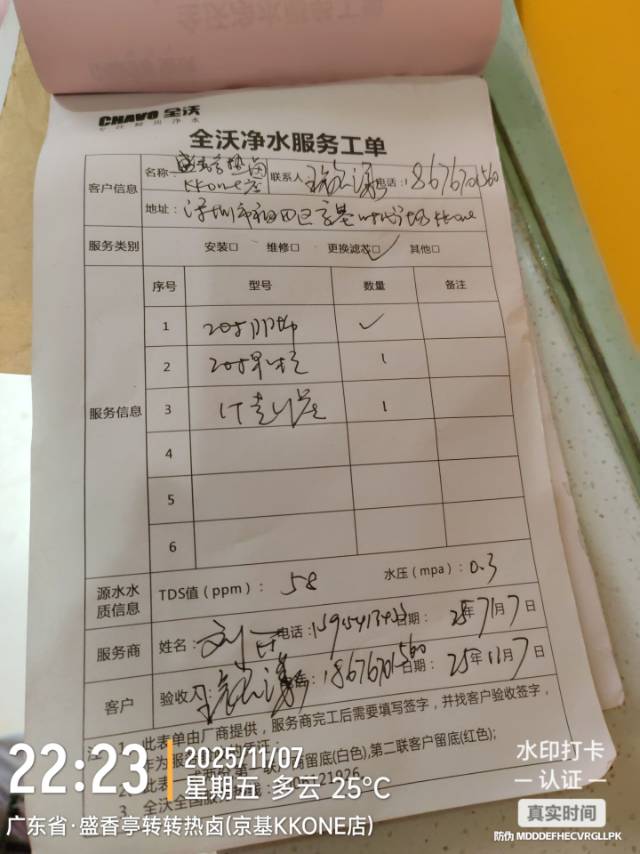 CHAVO 全沃
全沃净水服务工单
客户信息 名称: 盛香亭热卤 KKONE店 联系人 电话: 18676701560
地址: 深圳市福田区京基 KKone
服务类别 安装□ 维修□ 更换滤芯□✓ 其他□
服务信息 序号 型号 数量 备注
1 20寸 ✓
2 20寸 1
3 1
4
5
6
源水水质信息 TDS值(ppm): 58 水压(mpa): 0.3
服务商 姓名: 刘 电话: 日期: 25年11月7日
客户 验收人 18676701560 日期: 25年11月7日
注 1、此表单由厂商提供,服务商完工后需要填写签字,并找客户验收签字,
作为服务
2、此表 留底(白色),第二联客户留底(红色);
3、全沃全国服
22:23 2025/11/07
星期五 多云 25°C
广东省·盛香亭转转热卤(京基KKONE店)
水印打卡
认证
真实时间
防伪 MDDDEFHECVRGLLPK